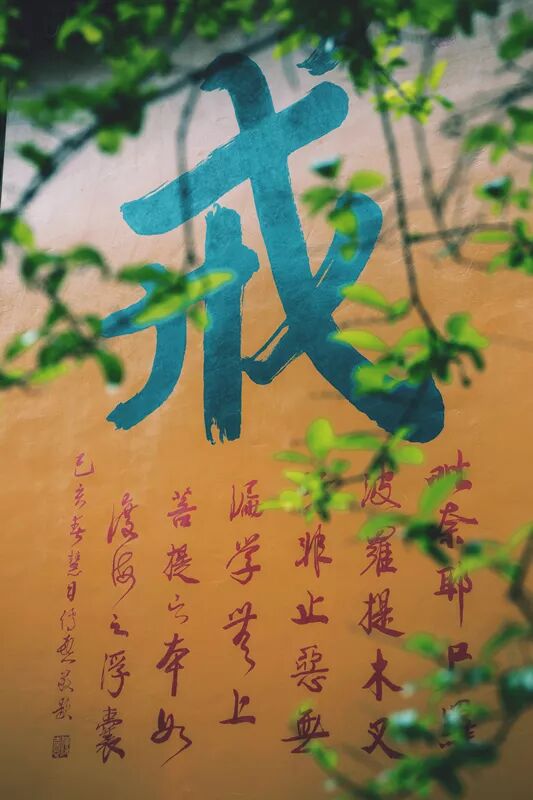 戒
毗奈耶口羅
波羅提木叉
非止惡無
漏学無上
菩提之本如
渡海之浮囊
己亥春慧日传